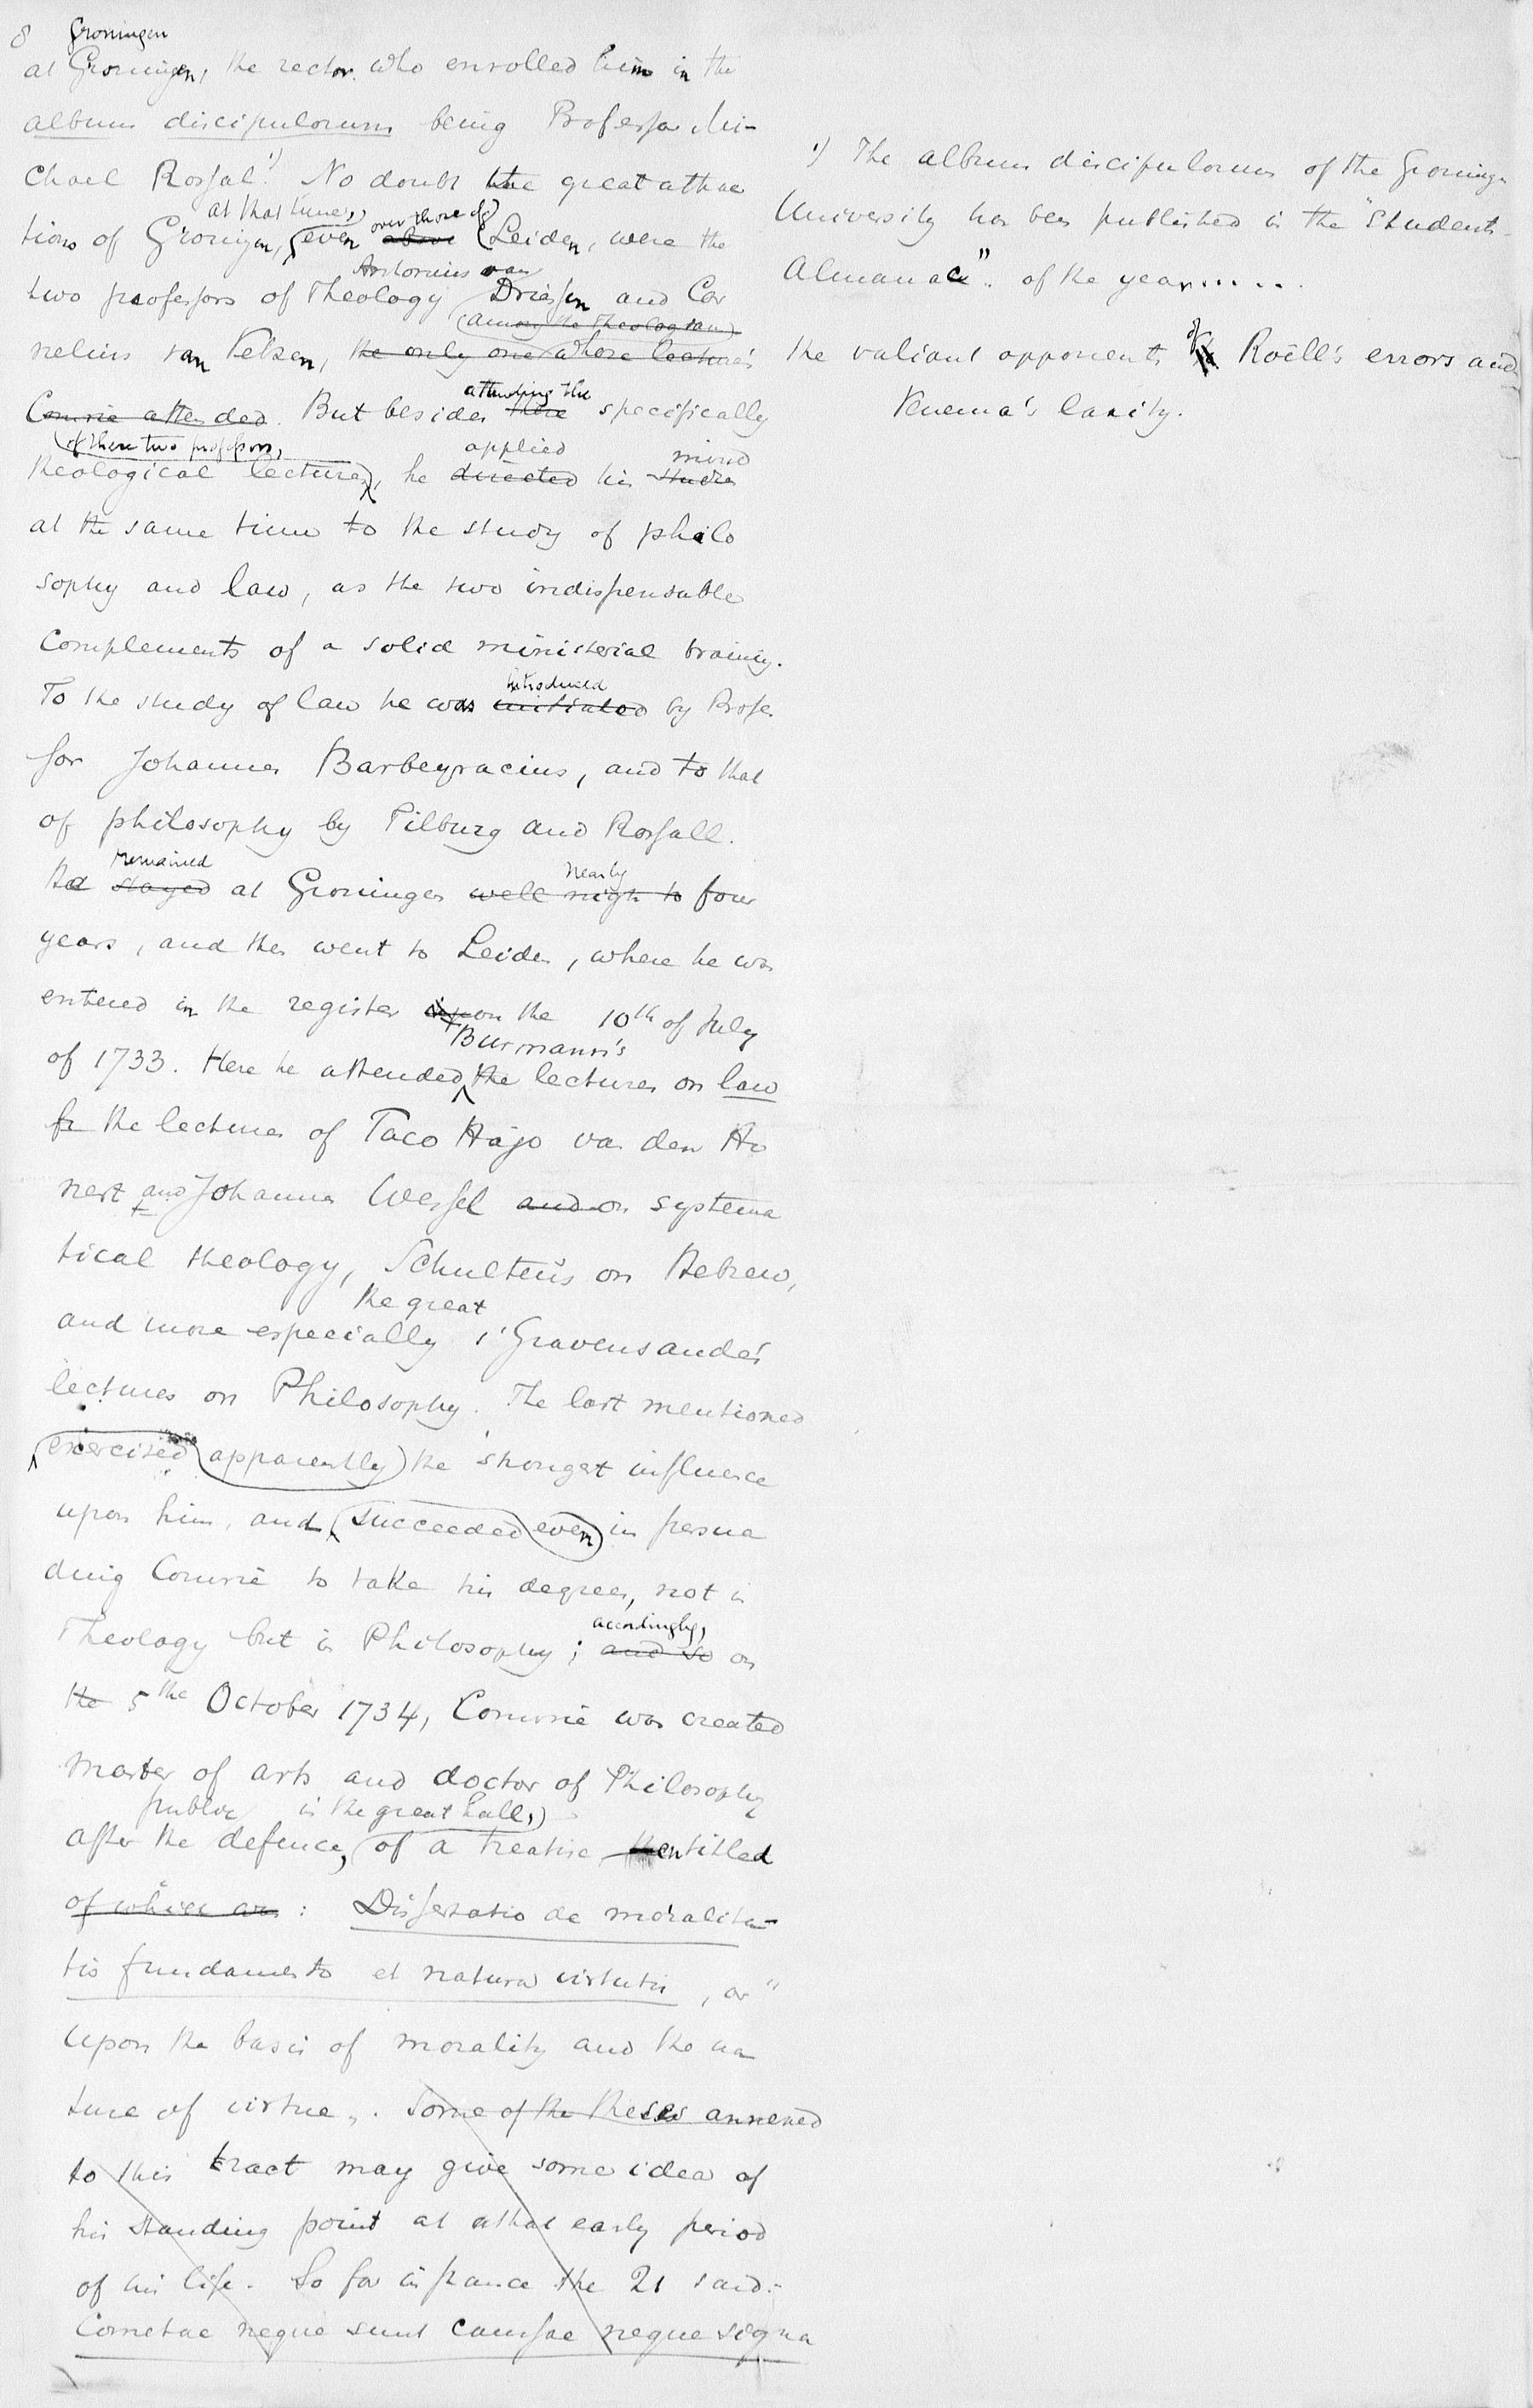 8 Groningen
at Groningen, the rector who enrolled him in the
album discipulorum being Professor Mi-
chael Rossal.1) No doubt the great attrac
at that time,, over those of
tions of Groningen, even above Leiden, were the
Antonius van
two professors of Theology Driessen and Cor
(among the theologians)
nelius van Velzen, the only one whose lectures
attending the
Comrie attended. But besides these specifically
(of these two professors, applied mind
theological lectures, he directed his studies
at the same time to the study of philo
sophy and law, as the two indispensable
complements of a solid ministerial training.
introduced
To the study of law he was initiated by Profes
sor Johannes Barbeyracius, and to that
of philosophy by Tilburg and Rossall.
remained nearly
He stayed at Groningen well nigh to four
years, and then went to Leiden, where he was
entered in the register upon the 10th of July
Burmann's
of 1733. Here he attended the lectures on law
the lectures of Taco Hajo van den Ho
nert and Johannes Wessel and on systema
tical theology, Schulten's on Hebrew,
the great
and more especially s'Gravensande's
lectures on Philosophy. The last mentioned
exercised apparently the strongest influence
upon him, and succeeded even in persua
ding Comrie to take his degrees, not in
accordingly,
Theology but in Philosophy; and so on
the 5the October 1734, Comrie was created
master of arts and doctor of Philosophy
public in the great hall,)
after the defence, of a treatise entitled
of which are : Dissertatio de moralita-
tis fundamento et natura virtutis, or "
upon the basis of morality and the na
ture of virtue„. Some of the theses annexed
to this tract may give some idea of
his standing point at that early period
of his life. So for instance the 21 said:
Cometae neque sunt caussae neque signa
1) The album discipulorum of the Groninge
University has been published in the "Students
Almanac". of the year.....
the valiant opponent of Roëll's errors and
Venema's laxity.